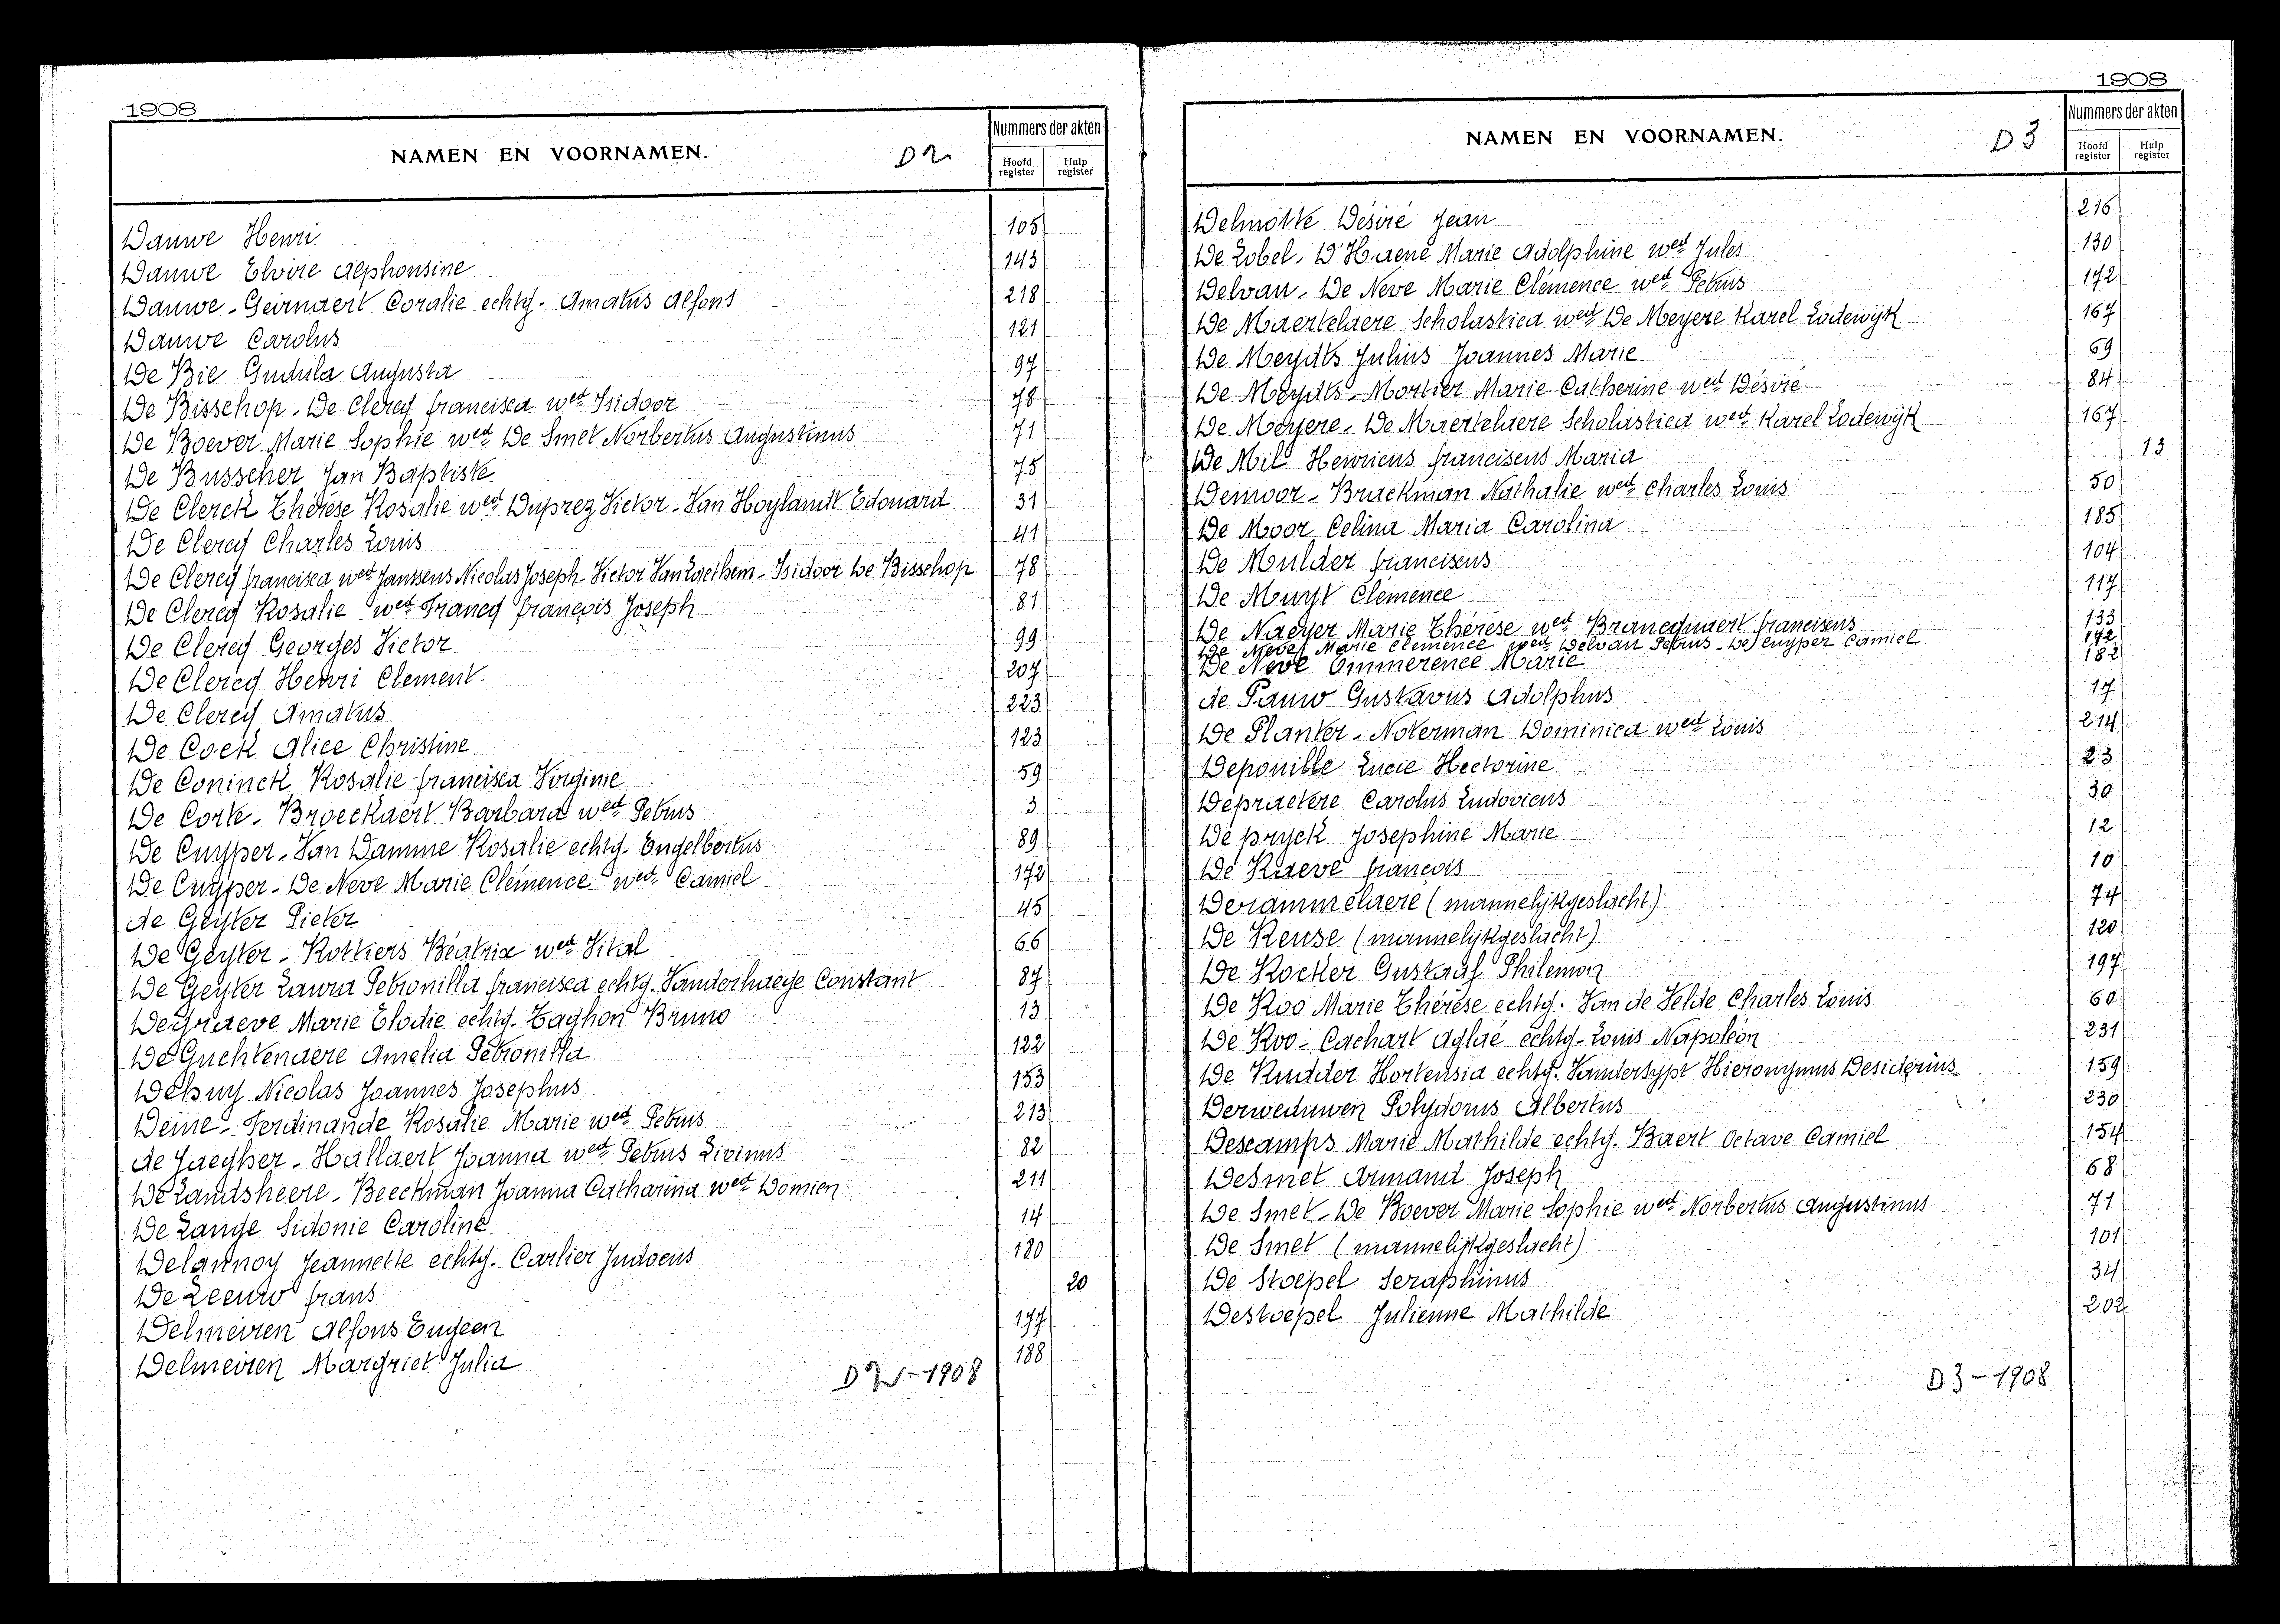 1908
NAMEN EN VOORNAMEN.
D2
Nummers der akten
Hoofd register
Hulp register
Dauwe Henri 105
Dauwe Elvire Alphonsine 143
Dauwe - Geirnaert Coralie echtg. Amatus Alfons 218
Dauwe Carolus 121
De Bie Gudula Augusta 97
De Bisschop - De Clercq francisca wed. Isidoor 78
De Boever Marie Sophie wed. De Smet Norbertus Augustinus 71
De Busscher Jan Baptiste 75
De Clerck Thérèse Rosalie wed. Duprez Victor - Van Hoylandt Edouard 31
De Clercq Charles Louis 41
De Clercq francisca wed. Janssens Nicolas Joseph - Victor Van Laethem - Isidoor De Bisschop 78
De Clercq Rosalie wed. Francq françois Joseph 81
De Clercq Georges Victor 99
De Clercq Henri Clement. 207
De Clercq Amatus 223
De Cock Alice Christine 123
De Coninck Rosalie francisca Virginie 59
De Corte - Broeckaert Barbara wed. Petrus 3
De Cuyper - Van Damme Rosalie echtg. Engelbertus 89
De Cuyper - De Neve Marie Clémence wed. Camiel 172
de Geyter Pieter 45
De Geyter - Rottiers Béatrix wed. Vital 66
De Geyter Laura Petronilla francisca echtg. Vanderhaege Constant 87
Degraeve Marie Elodie echtg. Taghon Bruno 13
De Guchtenaere Amelia Petronilla 122
Debuy Nicolas Joannes Josephus 153
Deine - Ferdinande Rosalie Marie wed. Petrus 213
de Jaegher - Hallaert Joanna wed. Petrus Livinus 82
De Landsheere - Beeckman Joanna Catharina wed. Domien 211
De Lange Sidonie Caroline 14
Delannoy Jeannette echtg. Carlier Judocus 180
De Leeuw frans 20
Delmeiren Alfons Eugeen 177
Delmeiren Margriet Julia 188
D2-1908
1908
NAMEN EN VOORNAMEN.
D3
Nummers der akten
Hoofd register
Hulp register
Delmotte Désiré Jean 216
De Lobel - D'Haene Marie Adolphine wed. Jules 130
Delvau - De Neve Marie Clémence wed. Petrus 172
De Maertelaere Scholastica wed. De Meyere Karel Lodewijk 167
De Meydts Julius Joannes Marie 69
De Meydts - Mortier Marie Catherine wed. Désiré 84
De Meyere - De Maertelaere Scholastica wed. Karel Lodewijk 167
De Mil Henricus franciscus Maria 13
Demoor - Brackman Nathalie wed. Charles Louis 50
De Moor Celina Maria Carolina 185
De Mulder franciscus 104
De Muyt Clemence 117
De Naeyer Marie Thérèse wed. Brancquaert franciscus 133
De Neve Marie Clemence wed. Delvau Petrus - De Cuyper Camiel 172
De Neve Ommerence Marie 182
de Pauw Gustavus Adolphus 17
De Planter - Noterman Dominica wed. Louis 214
Depouille Lucie Hectorine 23
Depraetere Carolus Ludovicus 30
De pryck Josephine Marie 12
De Raeve françois 10
Derammelaere (mannelijkgeslacht) 74
De Reuse (mannelijkgeslacht) 120
De Rocker Gustaaf Philemon 197
De Roo Marie Thérèse echtg. Van de Velde Charles Louis 60
De Roo - Cachart Aglaé echtg. Louis Napoléon 231
De Rudder Hortensia echtg. Vandersypt Hieronymus Desiderius 159
Derweduwen Polydorus Albertus 230
Descamps Marie Mathilde echtg. Baert Octave Camiel 154
Desmet Armand Joseph 68
De Smet - De Boever Marie Sophie wed. Norbertus Augustinus 71
De Smet (mannelijkgeslacht) 101
De Stoepel Seraphinus 34
Destoepel Julienne Mathilde 202
D3-1908